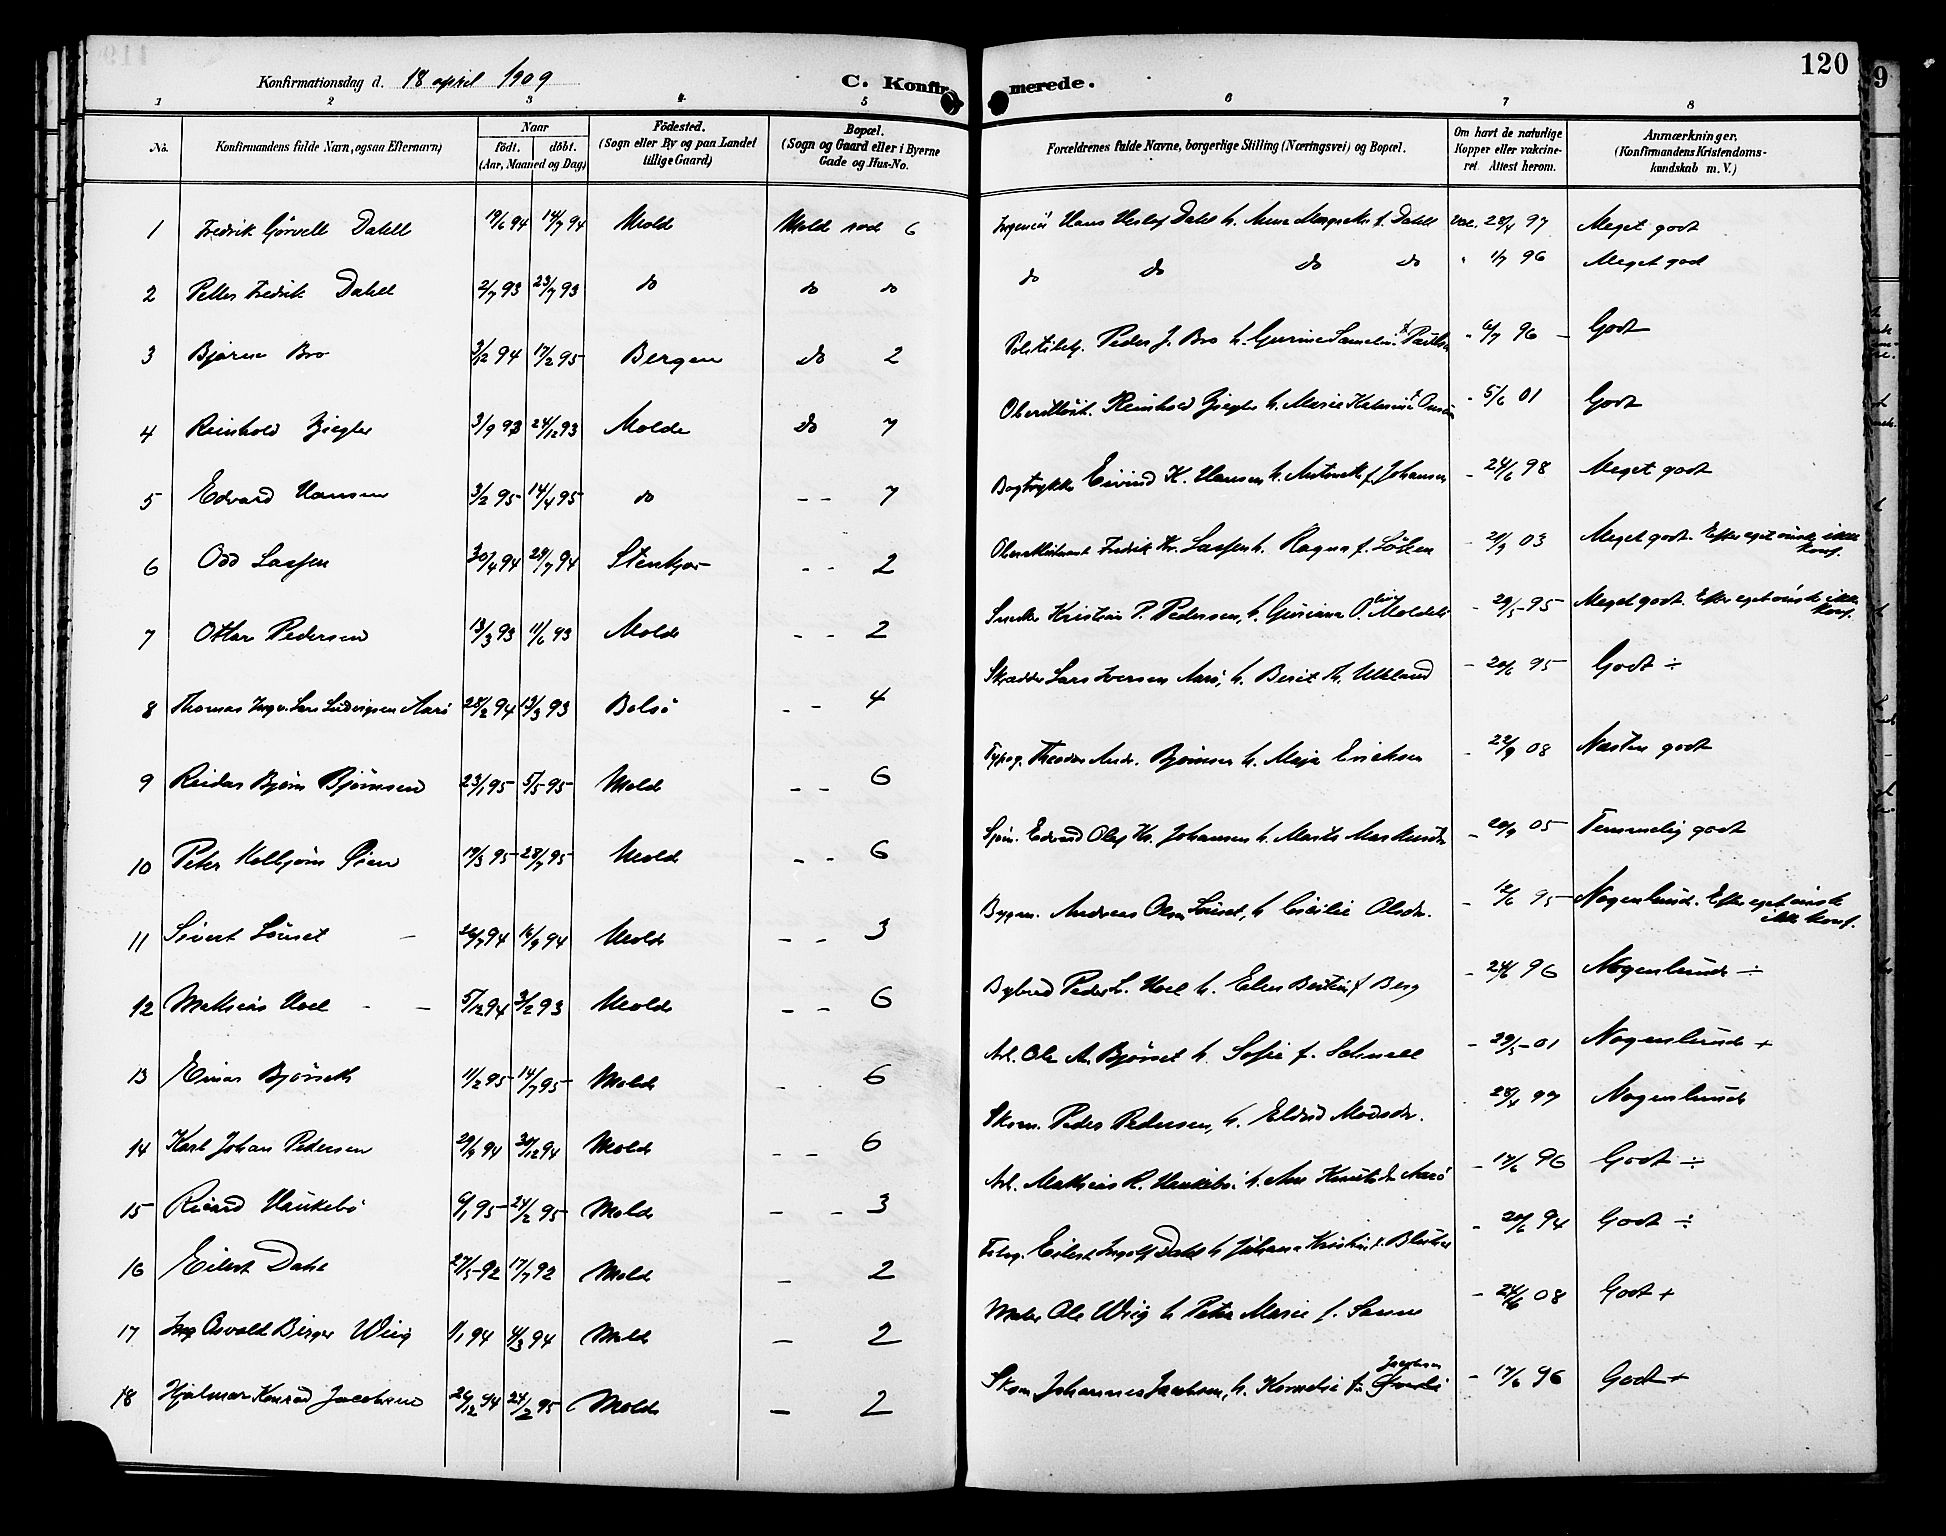 120
Konfirmationsdag d. 18 april 1909
C. Konfirmerede.
1 2 3 4 5 6 7 8
No.
Konfirmandens fulde Navn, ogsaa Efternavn)
Naar
födt. döbt.
(Aar, Maaned og Dag)
Födested.
(Sogn eller By og paa Landet
tillige Gaard)
Bopæl.
(Sogn og Gaard eller i Byerne
Gade og Hus-No.
Forældrenes fulde Navne, borgerlige Stilling (Næringsvei) og Bopæl.
Om havt de naturlige
Kopper eller vakcine-
ret. Attest herom.
Anmærkninger.
(Konfirmandens Kristendoms-
kundskab m. V.)
1 Fredrik Görvell Dahll 19/6 94 14/7 94 Molde Molde rod 6 Hans Dahll h. Anna Margrethe f. Dahll Vac. 28/4 97 Meget godt
2 Petter Fredrik Dahll 2/7 93 23/7 93 do do do do do do do " 1/7 96 Meget god
3 Bjarne Bro 3/12 94 17/2 95 Bergen do 2 Peder J. Bro h. - 6/7 96 - Godt
4 Reinhold Ziegler 3/9 93 24/12 93 Molde do 7 Reinhold Ziegler h. Marie - 5/6 01 Godt
5 Edvard Hansen 3/2 95 14/4 95 do - - 7 Bogtrykker Eivind K. Hansen h. f. Johansen - 24/6 98 Meget godt
6 Odd Lassen 30/4 94 29/7 94 Stenkjær - - 2 Fredrik Kr. Lassen h. Ragna f. Löken - 21/9 03 Meget godt. Efter eget önske ikke
konf.
7 Ottar Pedersen 13/3 93 11/6 93 Molde - - 2 Snedker Kristian P. Pedersen, h. Guriane - 29/5 95 Meget godt. Efter eget önske ikke
konf.
8 Thomas Ingv. Lars Ludvigsen Aarö 28/2 94 13/3 93 Bolsö - - 4 Skrædder Lars Iversen Aarö, h. Berit - 20/6 95 Godt ÷
9 Reidar Bjørn Bjørnsen 23/1 95 5/5 95 Molde - - 6 Typogr. Theodor Andr. Bjørnsen h. Maja Eriksen - 22/9 08 Næsten godt
10 Peter Kolbjørn Øien 19/3 95 28/7 95 Molde - - 6 Sjöm. Edvard Olaf Kr. Johansen h. - 20/9 05 Temmelig godt
11 Sivert Lönset - 26/7 94 16/9 94 Molde - - 3 Bygm. Andreas Olsen Lönset, h. Cecilie Olsdr. - 12/6 95 Nogenlunde. Efter eget önske
ikke konf.
12 Mathias Hoel - - 5/12 94 3/2 93 Molde - - 6 Bybud Peder L. Hoel h. Elen f. Berg - 24/6 96 Nogenlunde ÷
13 Einar Bjørseth 11/2 95 14/7 95 Molde - - 6 Arb. Ole A. Bjørset h. Sofie f. Schnell - 29/5 01 Nogenlunde +
14 Karl Johan Pedersen 29/9 94 30/12 94 Molde - - 6 Skom. Peder Pedersen, h. Eldrid Madsdr. 28/4 97 Nogenlunde
15 Ricard Haukebö 6/1 95 24/2 95 Molde - - 3 Arb. Mathias R. Haukebö h. Ane Aarö - 17/6 96 Godt ÷
16 Eilert Dahl 27/5 92 17/7 92 Molde - 2 Fotogr. Eilert Ingolf Dahl h. Johanne Kristine f. - 20/6 94 Godt ÷
17 Ing. Osvald Birger Wiig 1/1 94 4/3 94 Molde - 2 Maler Ole Wiig h. Petra Marie f. Sanne - 24/6 08 Godt +
18 Hjalmar Konrad Jacobsen 26/12 94 24/2 95 Molde - 2 Skom. Johannes Jacobsen, h. Kornelie f. Jacobsen - 17/6 96 Godt +